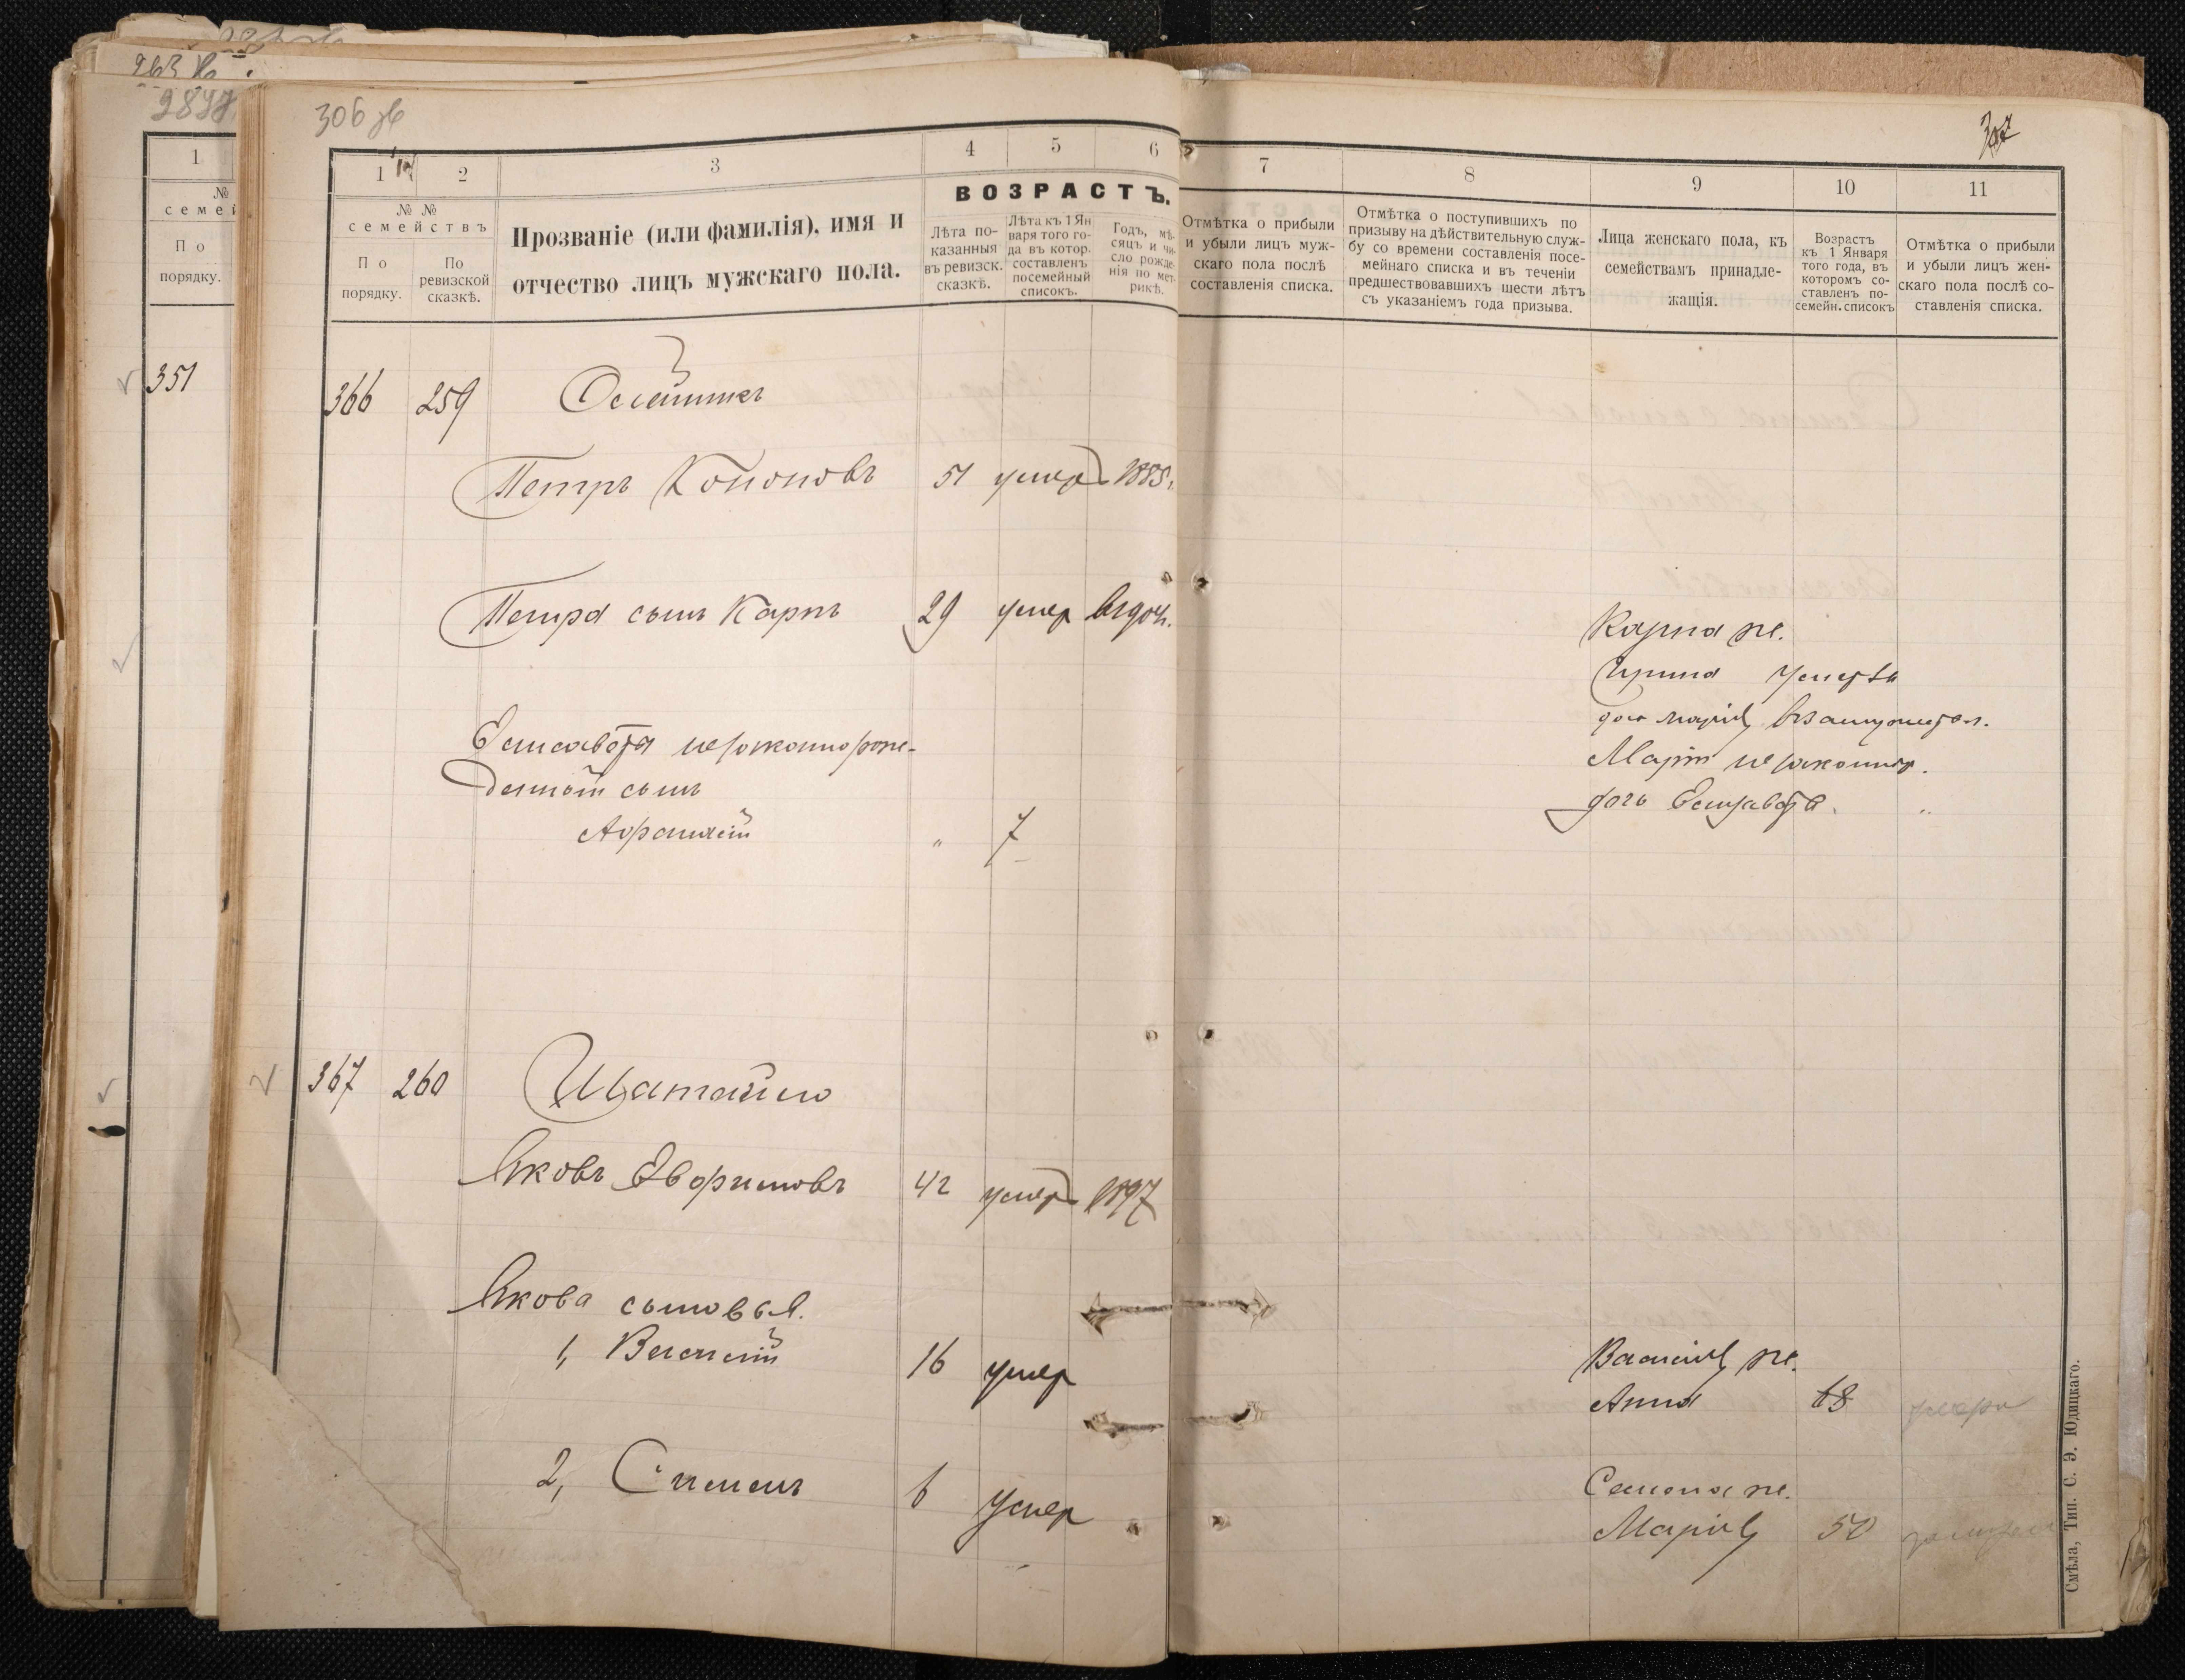 306 зв
307
1
№
По
порядку.
351
1 2 3 4 5 6 7 8 9 10 11
№ №
семействъ
По
порядку.
По
ревизской
сказкѣ.
Прозваніе (или фамилія), имя и
отчество лицъ мужскаго пола.
ВОЗРАСТЪ.
Лѣта по-
казанныя
въ ревизск.
сказкѣ.
Лѣта къ 1 Ян
варя того го-
да въ котор.
составленъ
посемейный
списокъ.
Годъ, мѣ-
сяцъ и чи-
сло рожде-
нія по мет-
рикѣ.
Отмѣтка о прибыли
и убыли лицъ муж-
скаго пола послѣ
составленія списка.
Отмѣтка о поступившихъ по
призыву на дѣйствительную служ-
бу со времени составленія посе-
мейнаго списка и въ теченіи
предшествовавшихъ шести лѣтъ
съ указаніемъ года призыва.
Лица женскаго пола, къ
семействамъ принадле-
жащія.
Возрастъ
къ 1 Января
того года, въ
которомъ со-
ставленъ по-
семейн. списокъ
Отмѣтка о прибыли
и убыли лицъ жен-
скаго пола послѣ со-
ставленія списка.
366 259
Петръ Кононовъ 51 умер 1885
Петра сынъ Карпъ 29 умер
Карпа ж.
Ирина
дочь Марія
незаконорож-
денный сынъ
Афанасій " 7
дочь "
367 260 Шатайло
Яковъ 42 умер 1897
Якова сыновья.
1, Василий 16 умер
Василія ж.
Анна 68
2, Сименъ 6 умер
Семена ж.
Марія 50
Смѣла, Тип. С. Э. Юдицкаго.